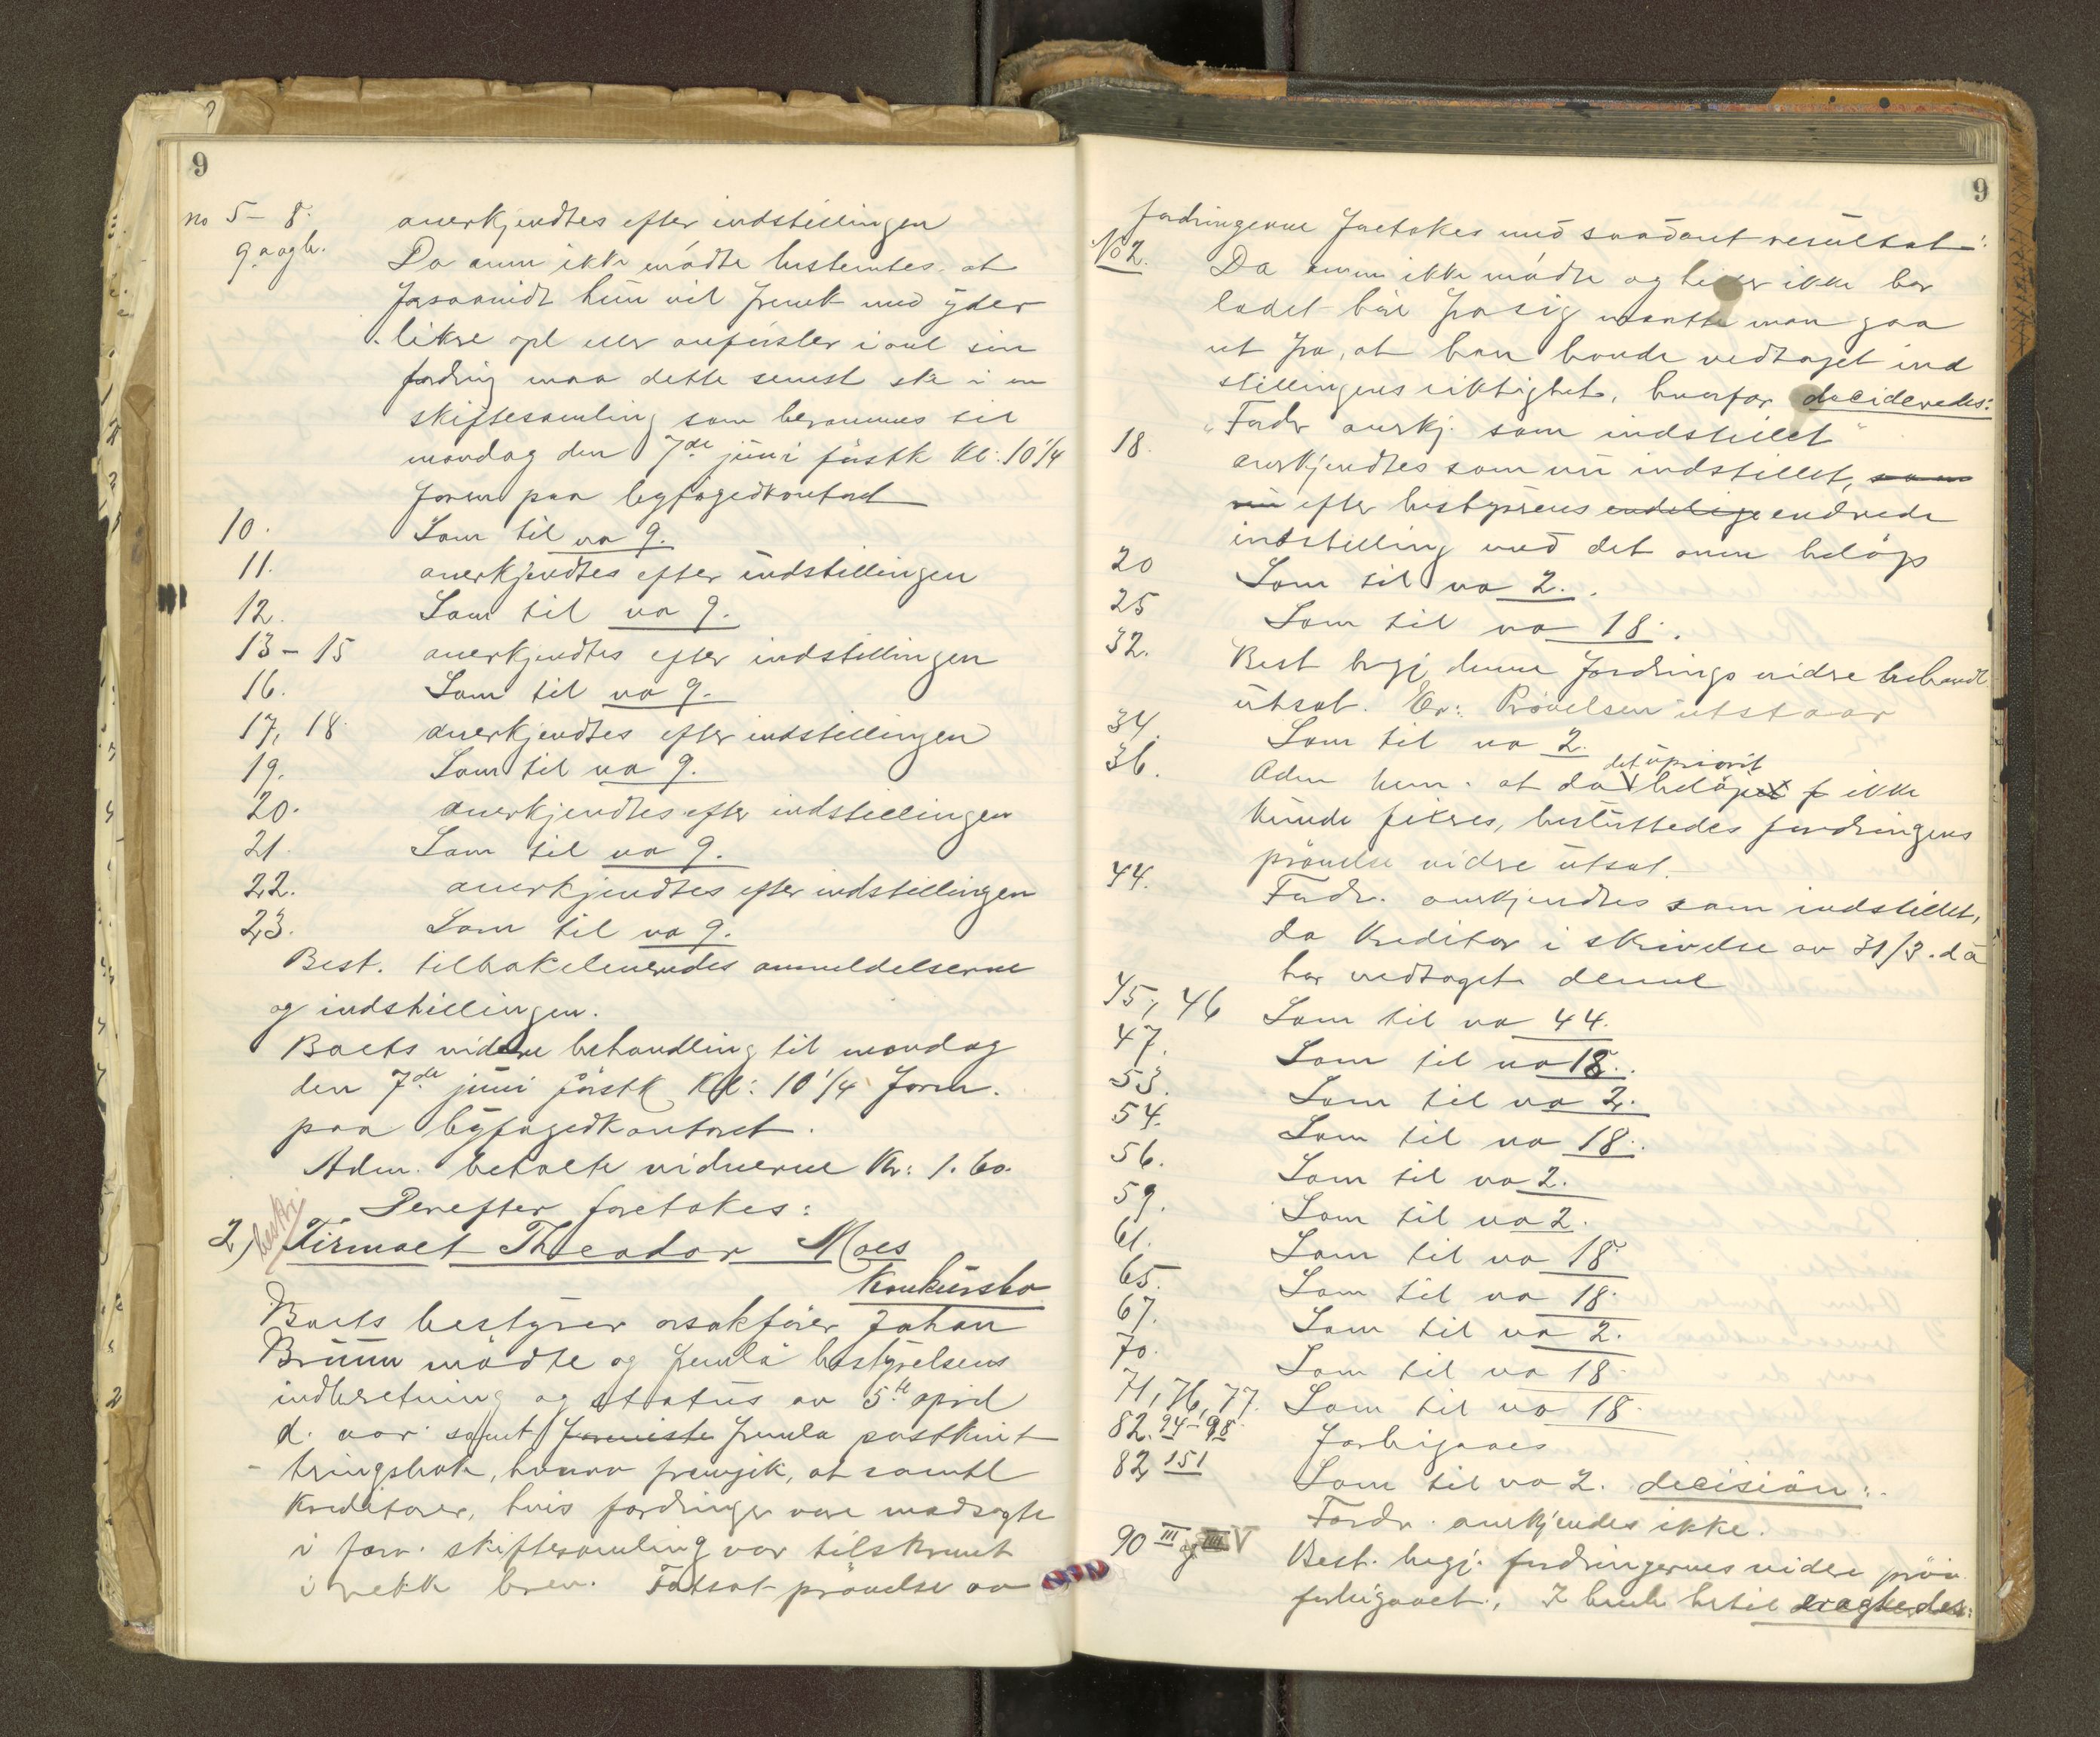 9
no 5 – 8. anerkjendtes efter indstillingen
9. a og b. Da anm ikke mødte bestemtes at
forsaavidt hun vil fremk med yder
likre opl eller anførsler i anl sin
fordring maa dette senest ske i en
skiftesamling som berammes til
mandag den 7de juni førstk kl: 10 1/4
form paa byfogedkontoret
10. Som til no 9.
11. anerkjendtes efter indstillingen
12. Som til no 9.
13 – 15 anerkjendtes efter indstillingen
16. Som til no 9.
17, 18 anerkjendtes efter indstillingen
19. Som til no 9.
20. anerkjendtes efter indstillingen
21. Som til no 9.
22. anerkjendtes efter indstillingen
23. Som til no 9.
Best. tilbakeleveredes anmeldelserne
og indstillingen.
Boets videre behandling til mandag
den 7de juni førstk kl: 10 1/4 form.
paa byfogedkontoret.
Adm. betalte vidnerne Kr: 1.60.
Derefter foretokes:
2) Firmaet Theodor Moes
Konkursbo
Boets bestyrer osakfører Johan
Bruun mødte og fremla bestyrelsens
indberetning og status av 5te april
d. aar samt fremla postkvit
teringsbok, hvorav fremgik, at samtl
kreditorer, hvis fordringer var motsagte
i forr. skiftesamling var tilskrevet
i rekk brev. Fatsat prøvelse av
9
fordringerne foretokes med saadant resultat:
No 2. Da anm ikke mødte og heller ikke har
ladet høre fra sig maatte man gaa
ut fra, at han havde vedtaget ind
stillingens riktighet, hvorfor decideredes:
"Fordr anerkj. som indstillet"
18. anerkjendtes som nu indstillet, som
nu efter bestyrerens endelige endrede
indstilling med det anm beløp
20 Som til no 2.
25 Som til no 18.
32. Best begj denne fordrings vidre behandl
utsat. Er: Prøvelsen utstaar
34. Som til no 2.
36. Adm bem. at da det upriorit beløpet f ikke
kunde fikses, besluttedes fordringens
prøvelse vidre utsat.
44. Fordr. anerkjendtes som indstillet,
da kreditor i skrivelse av 31/3. d a
har vedtaget denne
45, 46 Som til no 44.
47. Som til no 18.
53. Som til no 2.
54. Som til no 18.
56. Som til no 2.
59. Som til no 2.
61. Som til no 18
65. Som til no 18.
67. Som til no 2.
70. Som til no 18.
71, 76, 77. Som til no 18.
82. 94-98 Forbigaaes
82, 151 Som til no 2. decision:
Fordr. anerkjendes ikke.
90 III og V Best. begj. fordringernes videre prøv
forbigaaet. I henh hertil eragtedes: